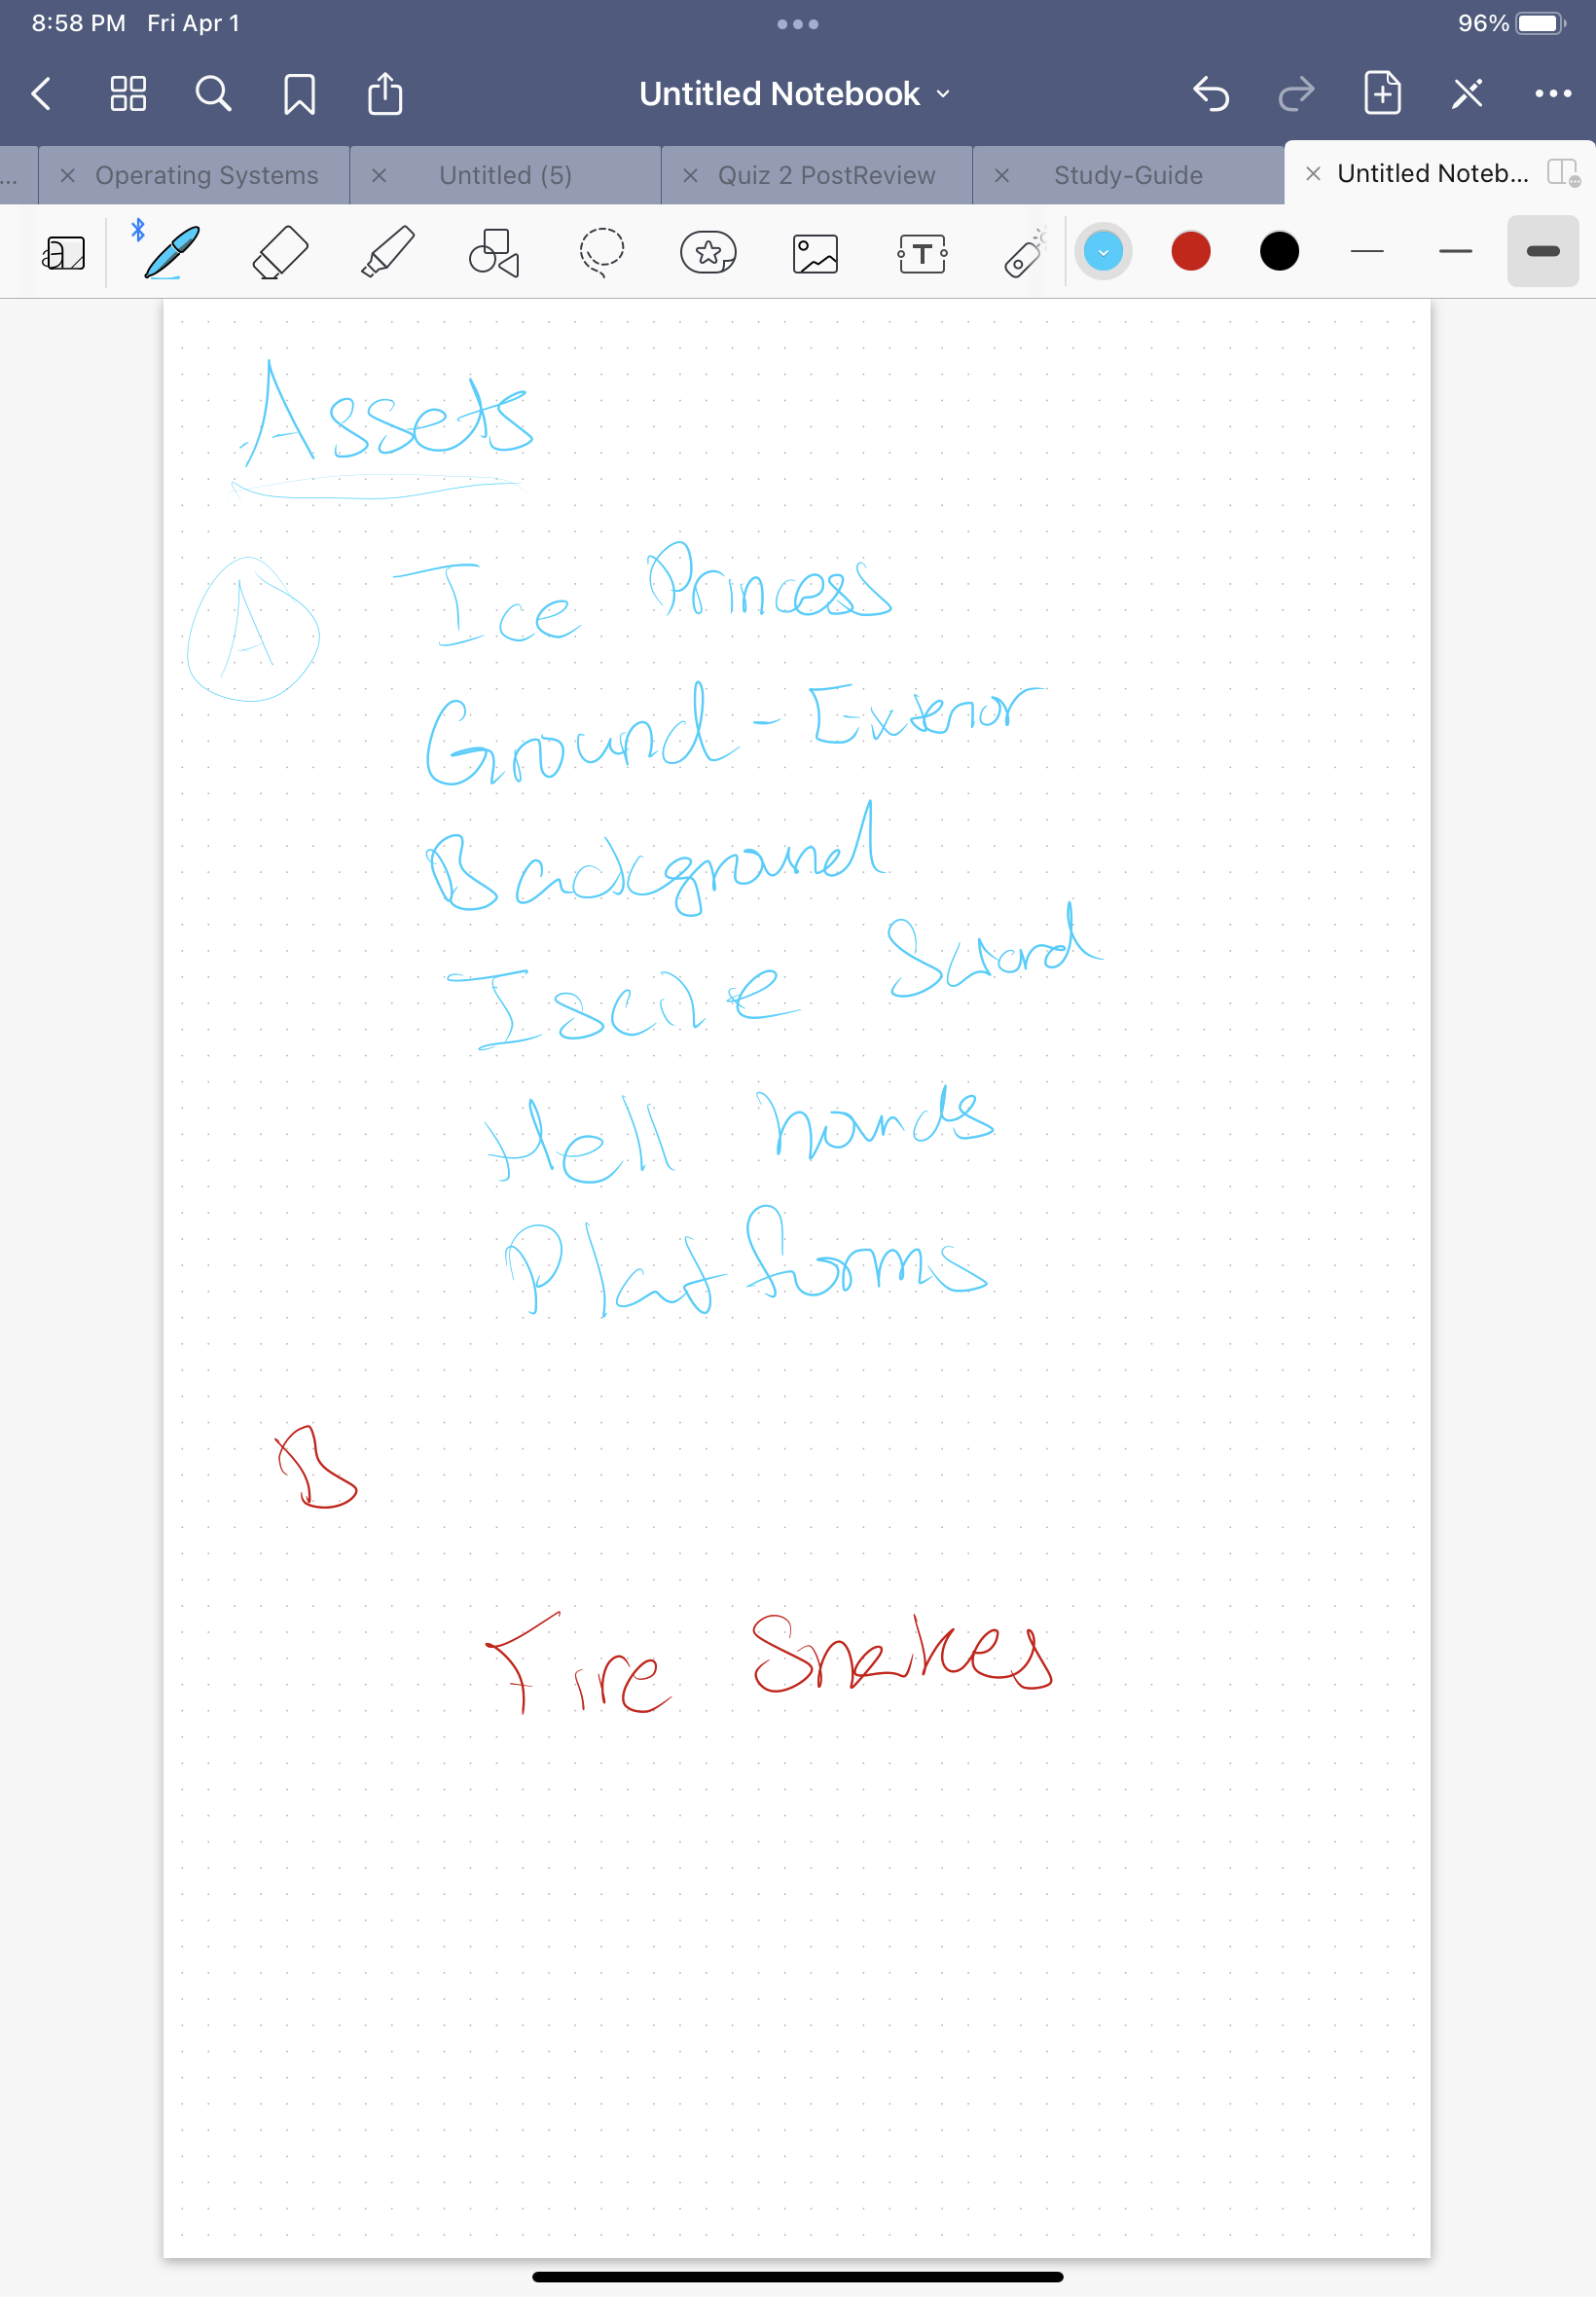 8:58 PM Fri Apr 1 96%
Untitled Notebook
... Operating Systems Untitled (5) Quiz 2 PostReview Study-Guide Untitled Noteb...
T
Assets
A Ice Princess
Ground - Exterior
Background
Iscile Sword
Hell hounds
Platforms
B
Fire Snakes